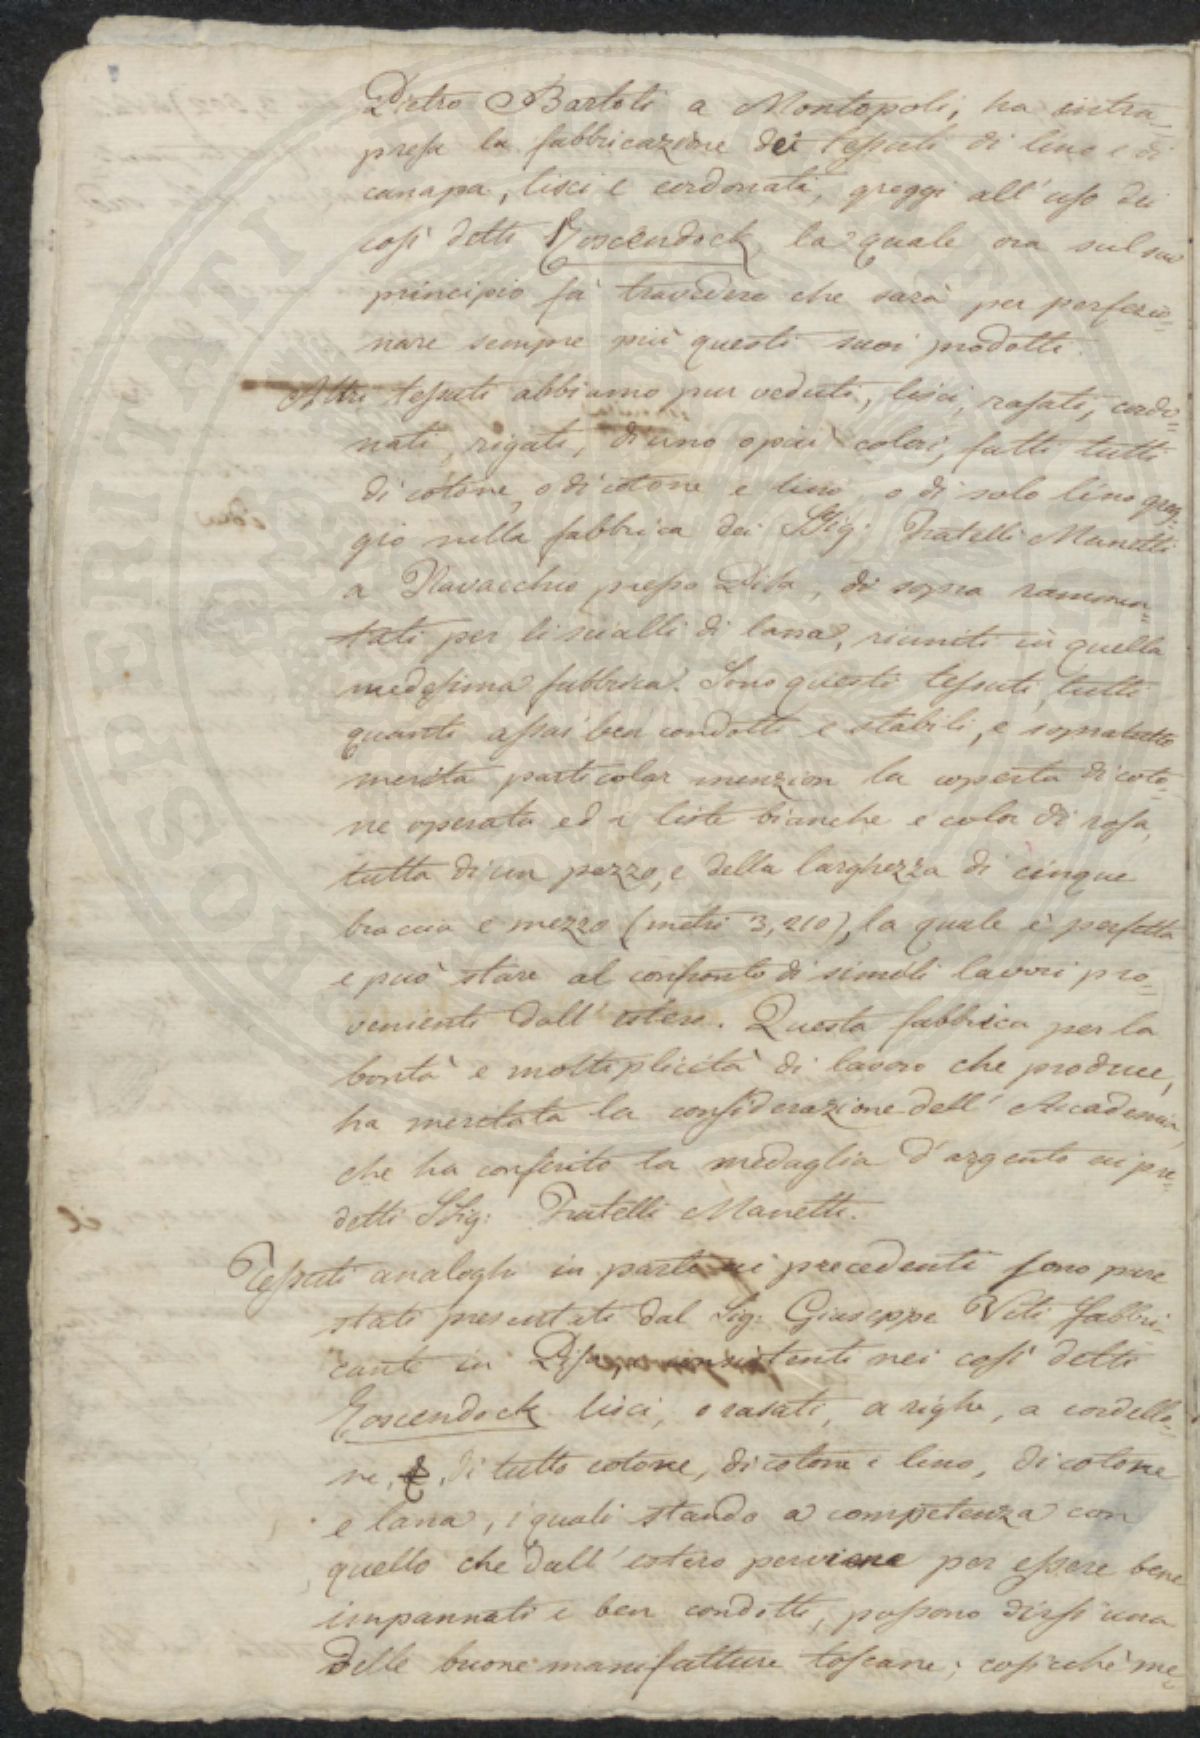 Pietro Bartoli a Montopoli, ha intra-
presa la fabbricazione dei tessuti di lino e di
canapa, lisci e cordonati, greggi all'uso dei
così detti Eoscendock, la quale ora sul suo
principio fà travedere che sarà per perfezio=
nare sempre più questi suoi prodotti.
Altri tessuti abbiamo pur veduti, lisci, rasati, cordo=
nati, rigati, di uno o più colori, fatti tutti
di cotone, o di cotone e lino, o di solo lino greg-
gio nella fabbrica dei SSig: Fratelli Manetti
a Navacchio presso Pisa, di sopra rammen=
tati per li scialli di lana, riuniti in quella
medesima fabbrica. Sono questi tessuti, tutti
quanti assai ben condotti e stabili, e sopratutto
merita particolar menzion la coperta di coto=
ne operata ed a liste bianche e color di rosa,
tutta di un pezzo, e della larghezza di cinque
braccia e mezzo (metri 3,210), la quale è perfetta
e può stare al confronto di simili lavori pro=
venienti dall'estero. Questa fabbrica per la
bontà e moltiplicità di lavoro che produce,
ha meritata la considerazione dell'Accademia,
che ha conferito la medaglia d'argento ai pre=
detti SSig: Fratelli Manetti.
Tessuti analoghi in parte ai precedenti sono pure
stati presentati dal Sig: Giuseppe Viti fabbri-
cante in Pisa, consistenti nei così detti
Eoscendock lisci, o rasati, a righe, a cordello=
ne, di tutto cotone, di cotone e lino, di cotone
e lana, i quali stando a competenza con
quello che dall'estero perviene per essere bene
impannati e ben condotti, possono dirsi una
delle buone manifatture toscane; cosicchè me=
PROSPERITATI PUBLICAE